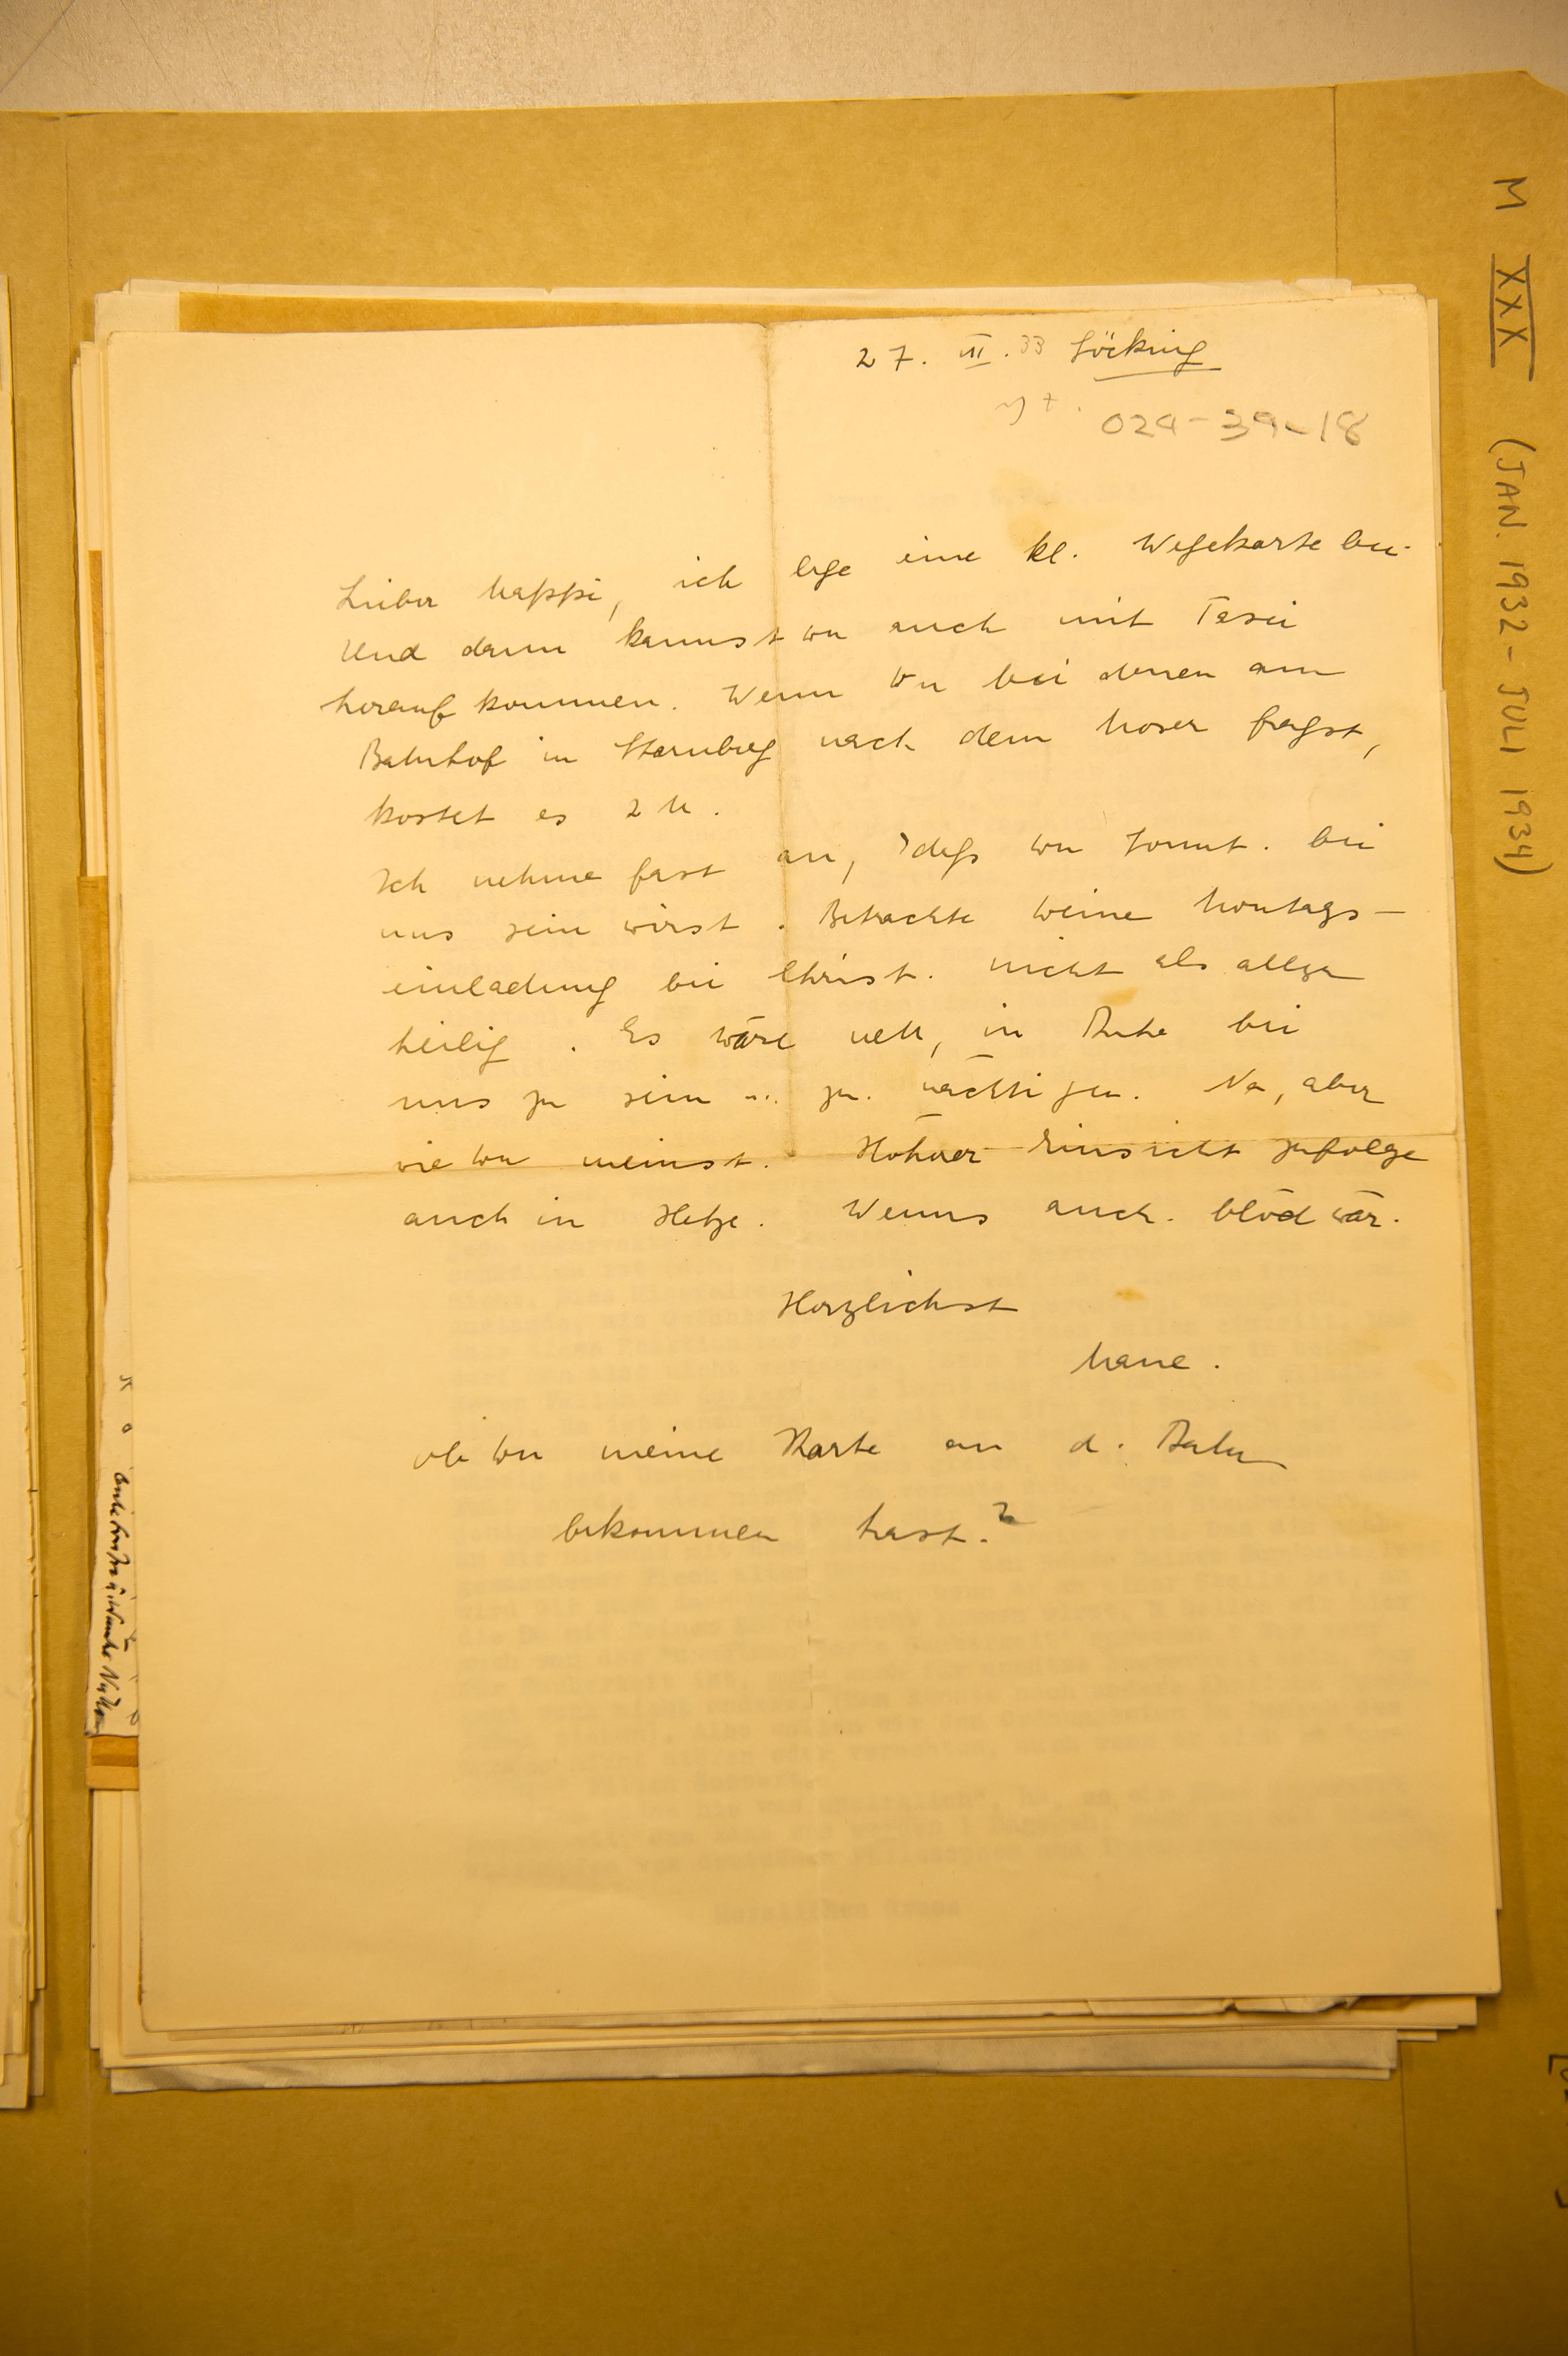 27. III. 33 Söcking
024-39-18
Lieber Mappi, ich lege eine kl. Wegekarte bei.
Und dann kannst Du auch mit Taxi
herauf kommen. Wenn Du bei denen am
Bahnhof in Starnberg nach dem Moser fragst,
kostet es 2 M.
Ich nehme fast an, dass Du Sonnt. bei
uns sein wirst. Betrachte Deine Montags-
einladung bei Christ. nicht als allzu
heilig. Es wäre nett, in Ruhe bei
uns zu sein u. zu nächtigen. Na, aber
wie Du meinst. Höherer Einsicht zufolge
auch in Hetze. Wenns auch blöd wär.
Herzlichst
Mane.
ob Du meine Karte an d. Bahn
bekommen hast.?
M XXX (JAN. 1932 - JULI 1934)